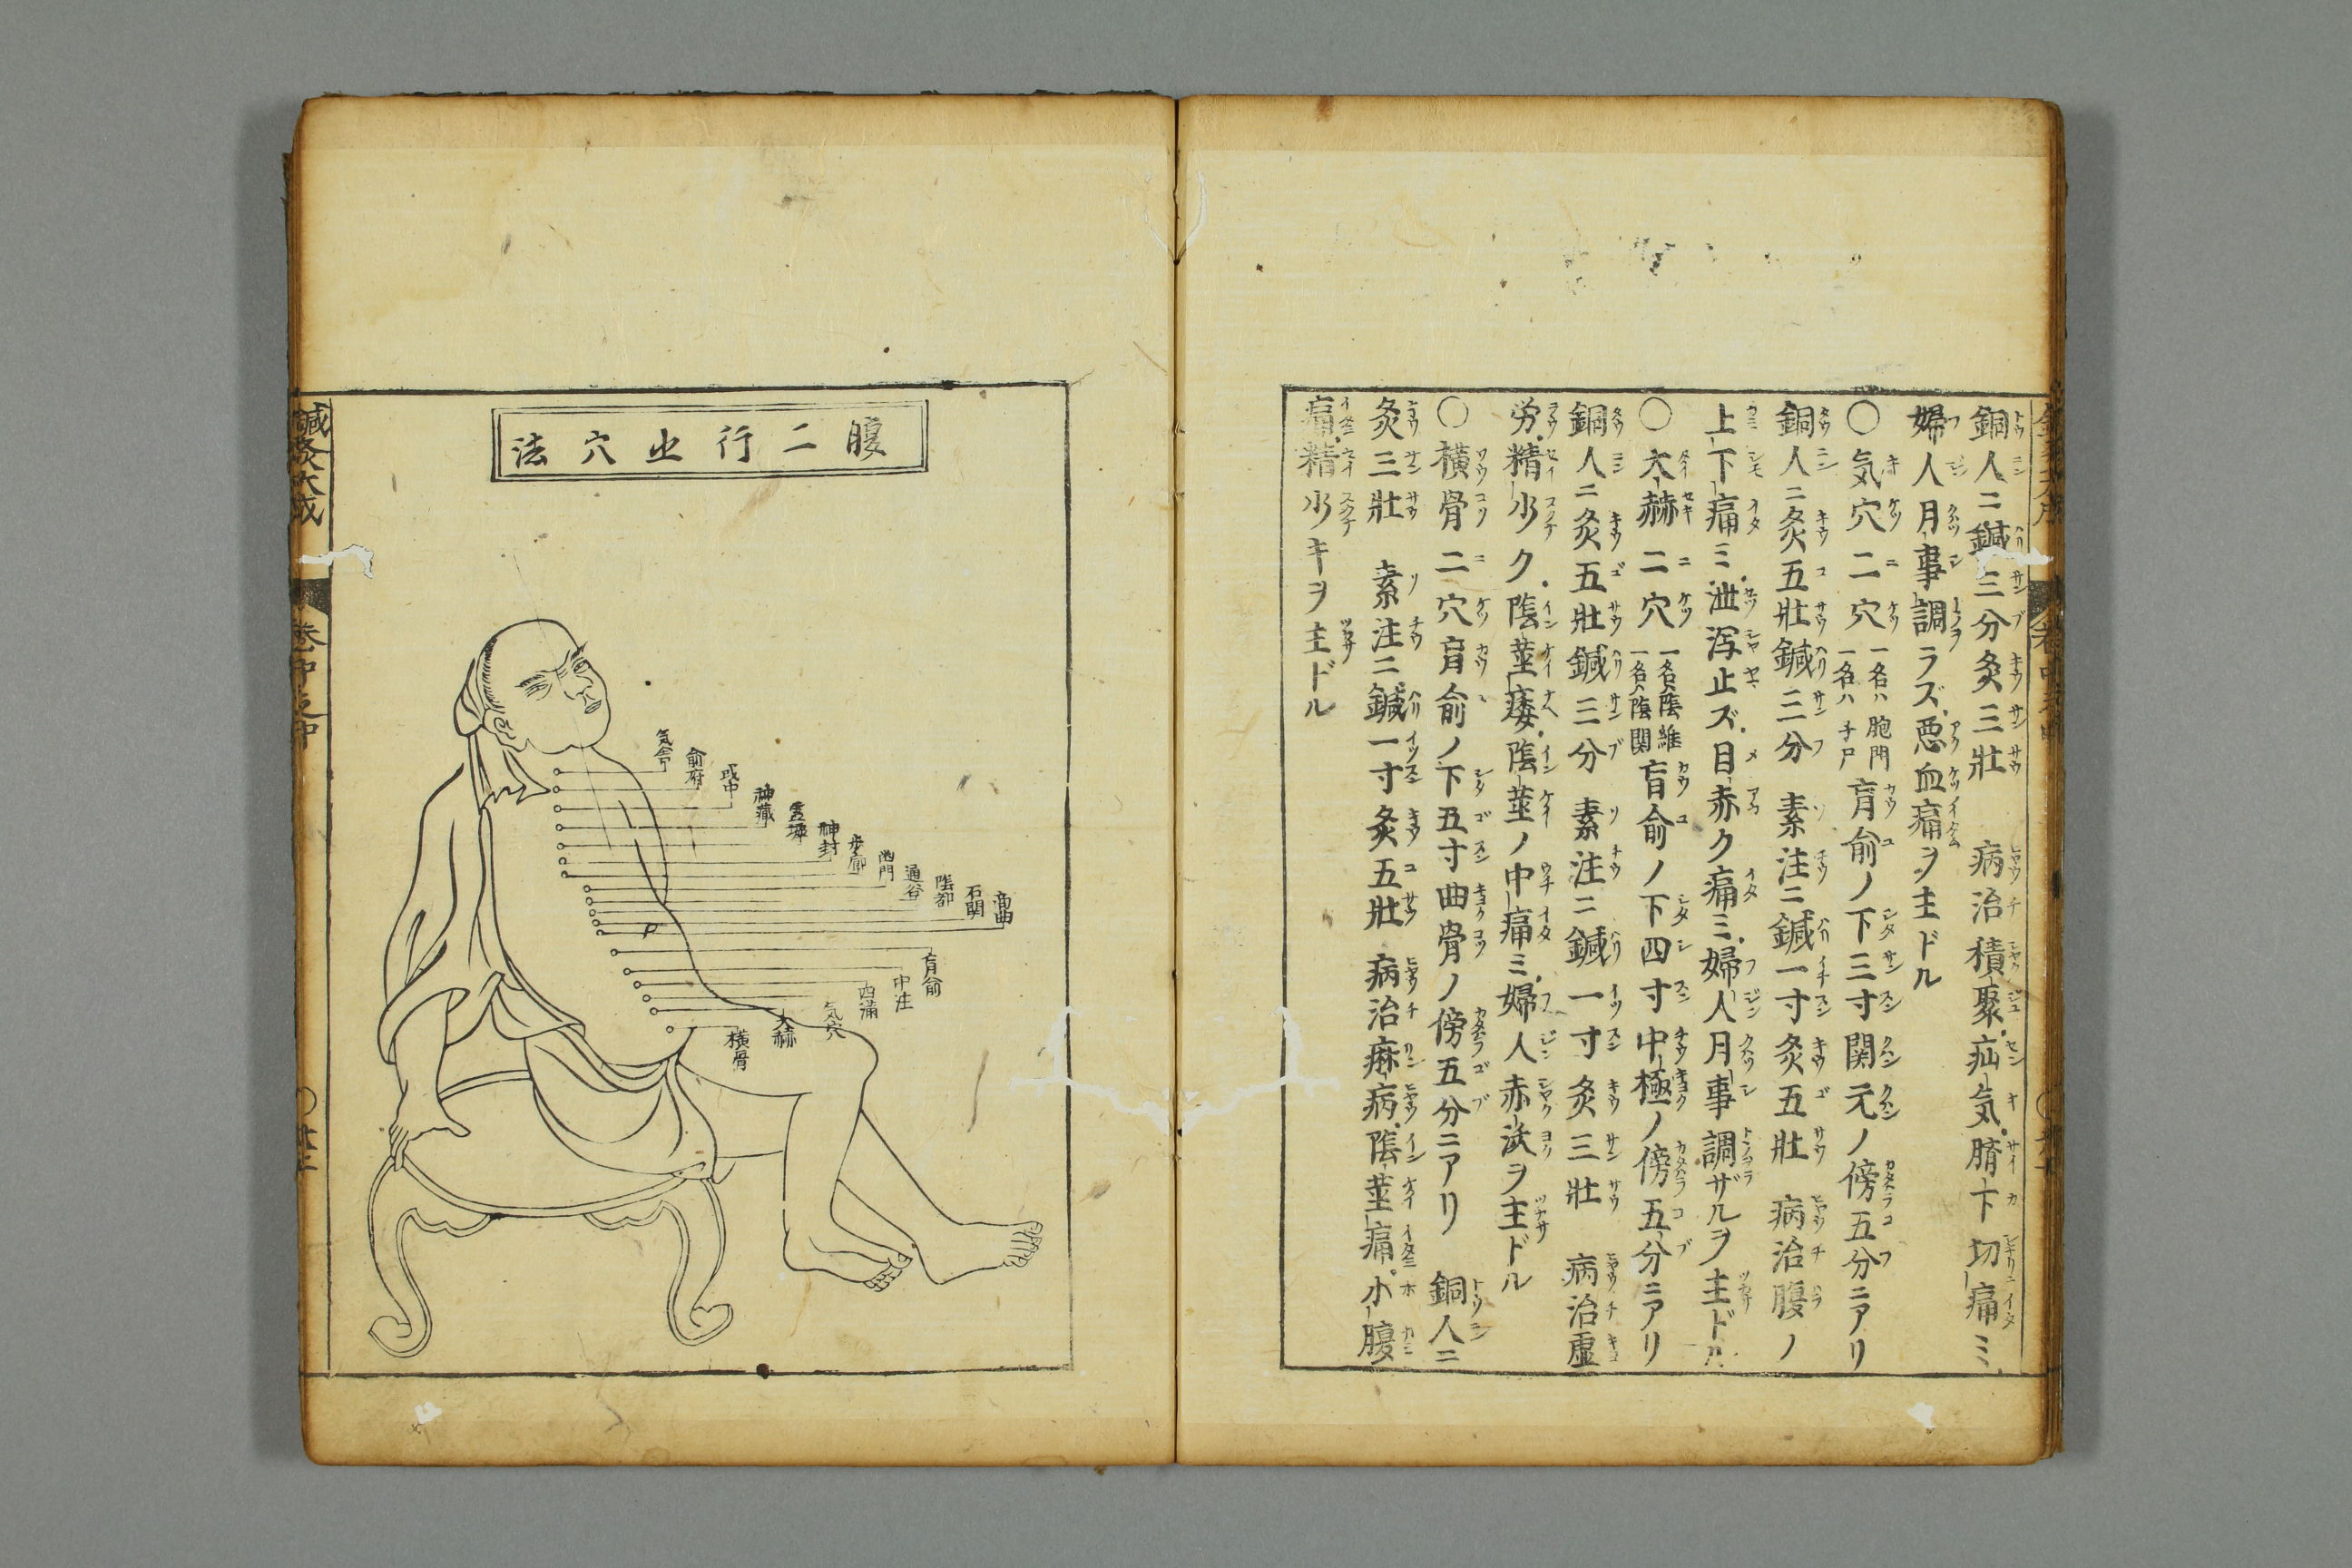 銅人ニ鍼三分灸三壯　病治積聚疝気臍下切痛ミ
婦人月事調ラズ悪血痛ヲ主ドル
〇気穴二穴一名ハ胞門一名ハ子戸肓俞ノ下三寸関元ノ傍五分ニアリ
銅人ニ灸五壯鍼三分　素注ニ鍼一寸灸五壯　病治腹ノ
上下痛ミ泄瀉止ズ目赤ク痛ミ婦人月事調ザルヲ主ドル
〇大赫二穴一名ハ陰維一名ハ陰関肓俞ノ下四寸中極ノ傍五分ニアリ
銅人ニ灸五壯鍼三分　素注ニ鍼一寸灸三壯　病治虚
労精少ク陰茎痿陰茎ノ中痛ミ婦人赤浃ヲ主ドル
〇横骨二穴肓俞ノ下五寸曲骨ノ傍五分ニアリ　銅人ニ
灸三壯　素注ニ鍼一寸灸五壯　病治痳病陰茎痛小腹
痛精少キヲ主ドル
腹二行之穴法
気舎
俞府
彧中
神藏
霊墟
神封
歩廊
幽門
通谷
陰都
石関
商曲
肓俞
中注
四滿
気穴
大赫
横骨
鍼灸大成
卷中之中
〇廿二